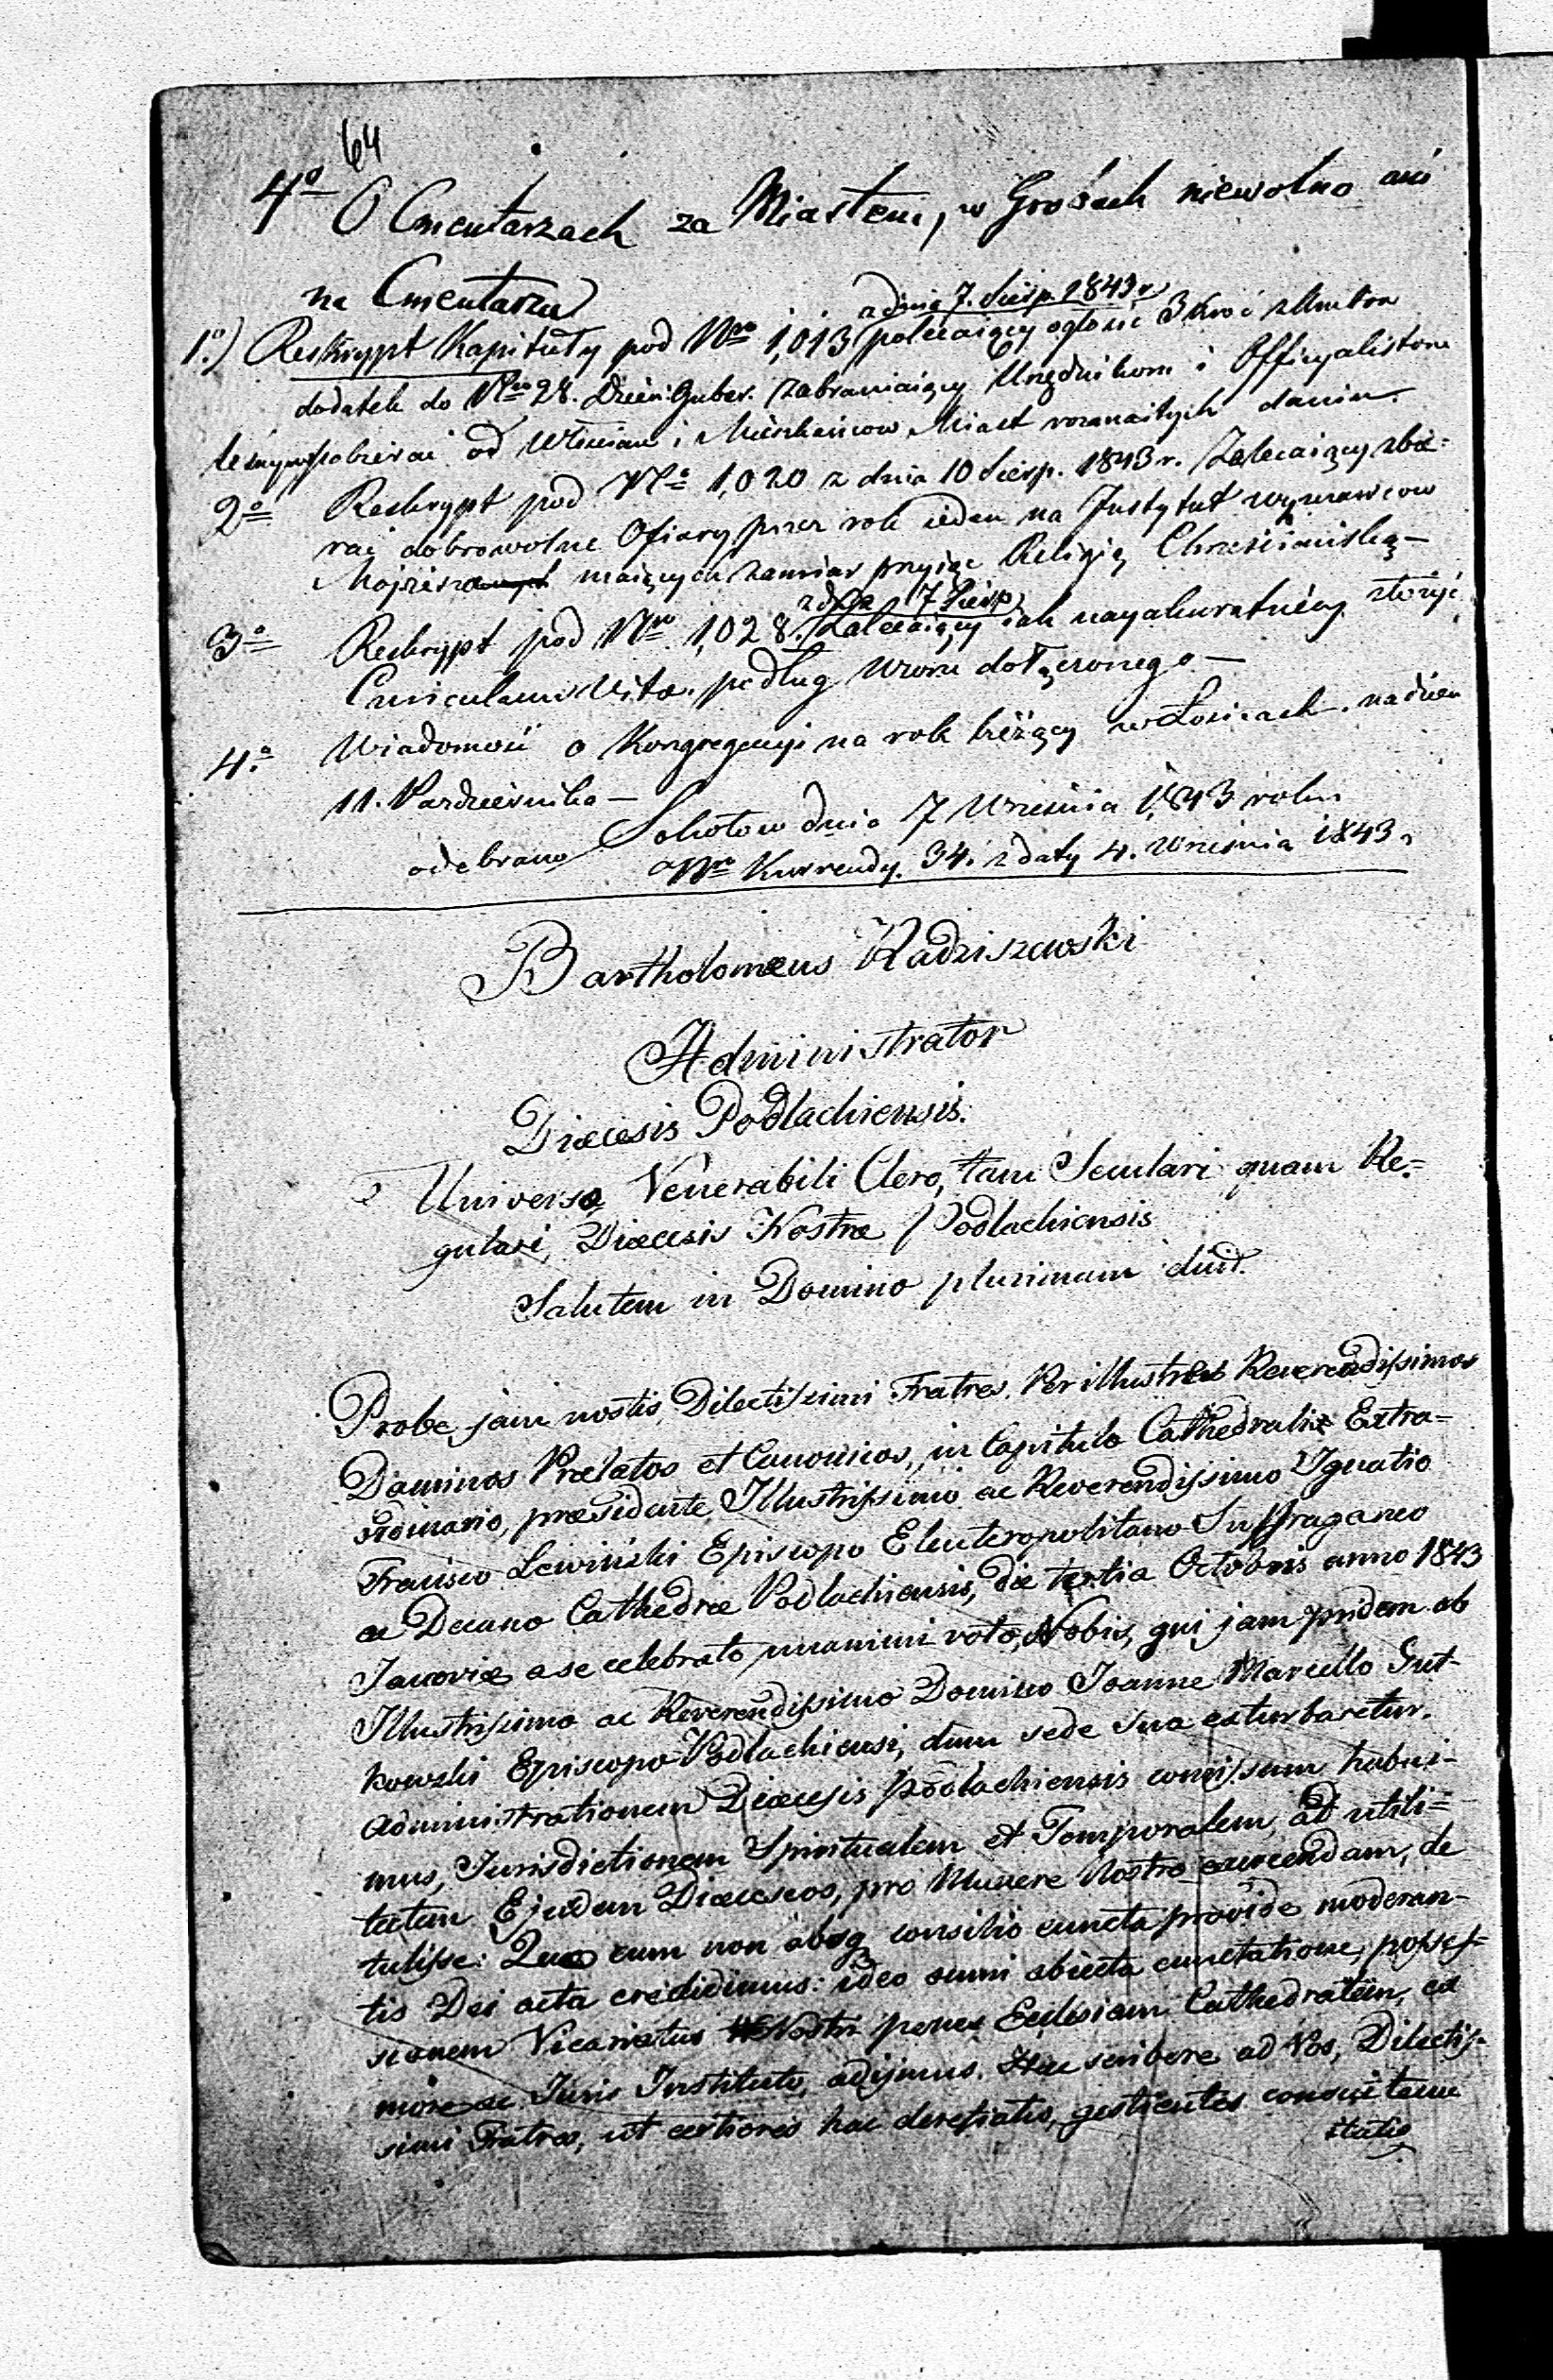 64
4o O Cmentarzach za Miastem, w Grobach niewolno ani
na Cmentarzu
z dnia 7. Sierp. 1843 r.
1o.) Reskrypt Kapituły pod Nro 1,013 polecaiący ogłosić 3 kroć z Ambon
dodatek do Nro 28. Dzien: Guber. zabraniaiący Urzędnikom i Officyalistom
leśnym pobierać od Włościan i Mieszkańcow Miast rozmaitych danin.
2o Reskrypt pod No 1,020 z dnia 10 Sierp. 1843 r. Zalecaiący zbie=
rać dobrowolne Ofiary przez rok ieden na Instytut wyznawcow
Mojżesza maiących zamiar przyiąć Religią Chrześcianską —
z dnia 7 Sierp.
3o Reskrypt pod Nro 1,028. Zalecaiący iak nayakuratniéy złożyć
Curiculum Vitæ. podług wzoru dołączonego —
4o Wiadomość o Kongregacyi na rok bieżący w Łosicach. na dzien
11. Pazdziernika —
Sokołow dnia 7 Września 1843 roku
odebrano Nro Kurrendy. 34. z daty 4. Września 1843 r
Bartholomæus Radziszewski
Administrator
Diæcesis Podlachiensis.
Universo Venerabili Clero, tam Seculari quam Re=
gulari, Diæcesis Nostræ Podlachiensis
Salutem in Domino plurimam dicit.
Probe jam nostis, Dilectissimi Fratres, Perillustres Reverendissimos
Dominos Prælatos et Canonicos, in Capitulo Cathedrali Extra=
ordinario, præsidente Illustrissimo ac Reverendissimo Ignatio
Francisco Lewiński Episcopo Eleuteropolitano Suffraganeo
ac Decano Cathedræ Podlachiensis, die tertia Octobris anno 1843
Janoviæ a se celebrato, unanimi voto, Nobis, qui jam pridem ab
Illustrissimo ac Reverendissimo Domino Joanne Marcello Gut-
kowski Episcopo Podlachiensi, dum sede sua exturbaretur,
administrationem Diæcesis Podlachiensis comissam habui-
mus, Jurisdictionem Spiritualem et Temporalem, ad utili=
tatem Ejusdem Diæceseos, pro Munere Nostro exercendam, de
tulisse: Quæ cum non absq consilio cuncta provide moderan-
tis Dei acta credidimus: ideo omni abiecta cunctatione, posses-
sionem Vicariatus Nostri penes Ecclesiam Cathedralem, ex
more ac Juris Instituto, adijmus. Hæc scribere ad Vos, Dilectis-
simi Fratres, ut certiores hac de re fiatis, gestientes
statis